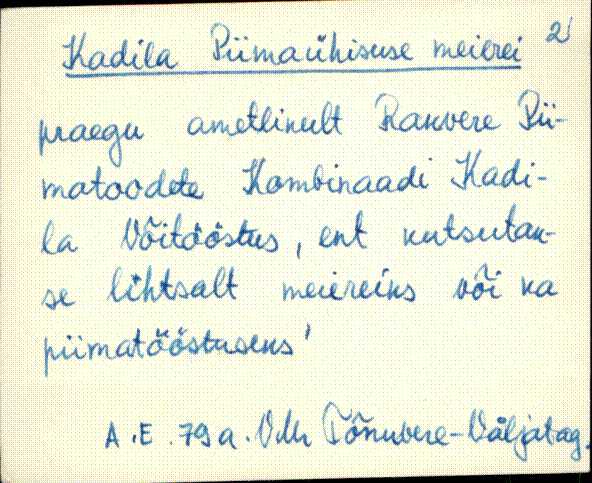 Kadila Piimaühisuse meierei 2
praegu ametlikult Rakvere Pii-
matoodete Kombinaadi Kadi-
la Võitööstus, ent kutsutak-
se lihtsalt meiereiks või ka
piimatööstuseks'
A.E. 79 a. V.Mr Tõnuvere-Väljatag.